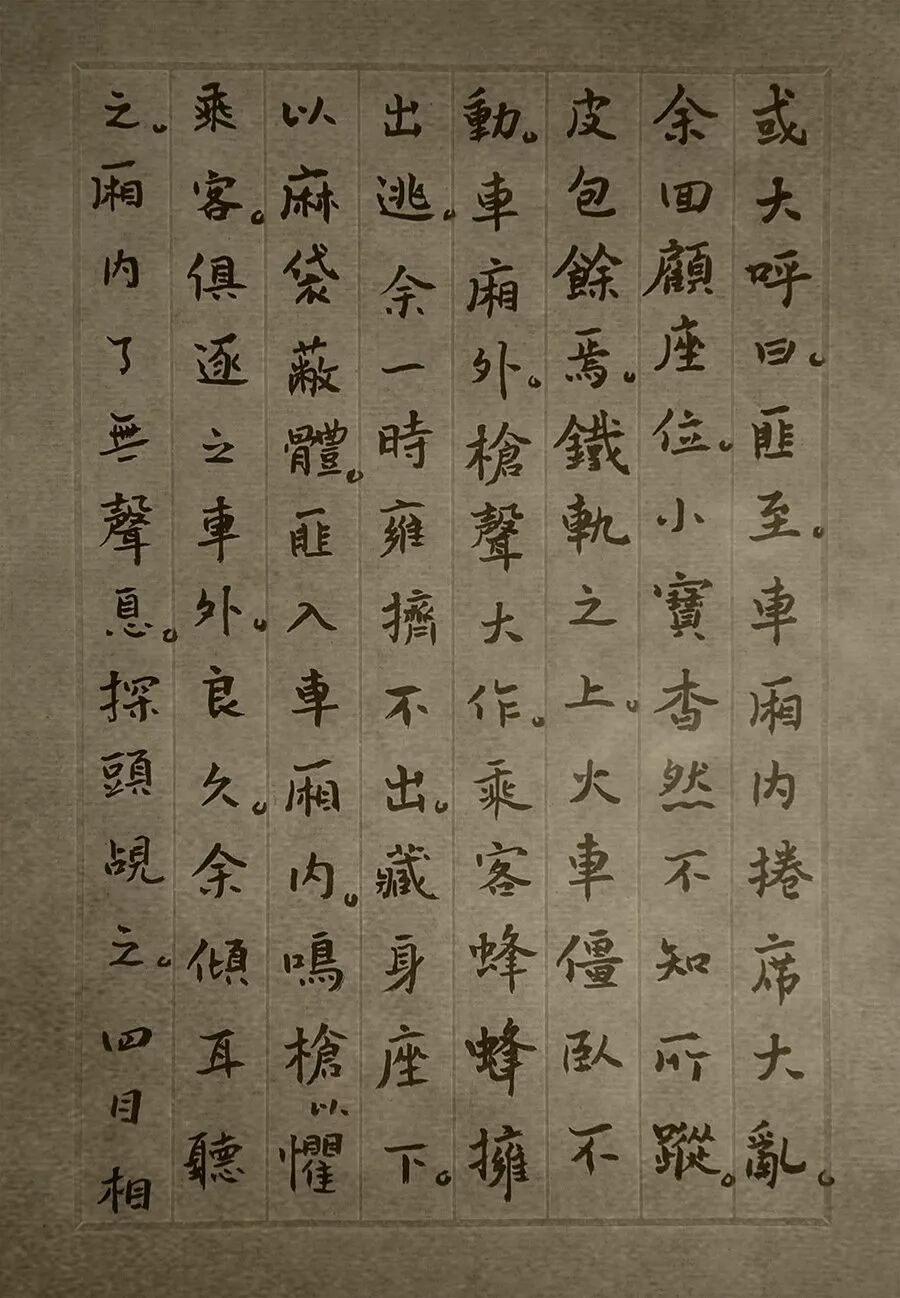 或大呼曰。匪至。車廂内捲席大亂。
余回顧座位。小寶杳然不知所蹤。
皮包餘焉。鐵軌之上。火車僵臥不
動。車廂外。槍聲大作。乘客蜂蜂擁
出逃。余一時雍擠不出。藏身座下。
以麻袋蔽體。匪入車廂内。鳴槍以懼
乘客。俱逐之車外。良久。余傾耳聽
之。廂内了無聲息。探頭覘之。四目相